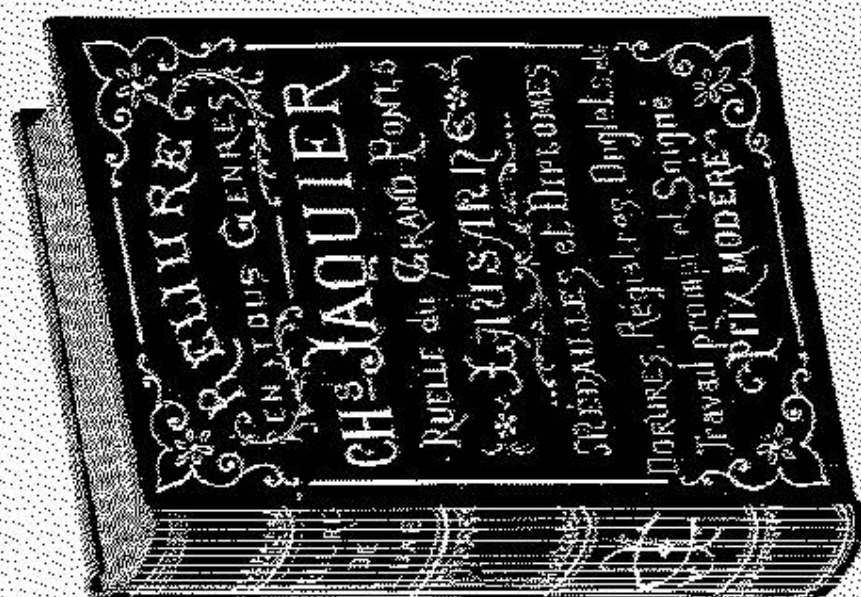 RELIURE
EN TOUS GENRES
CHS JAQUIER
RUELLE du GRAND PONT, 9
LAUSANNE
MÉDAILLES et DIPLOMES
DORURES, Registres, Onglets, &.
Travail prompt et Soigné
PRIX MODÉRÉ